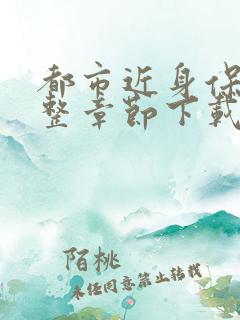 都市近身保
整章节下载
陌桃
未经同意禁止转载